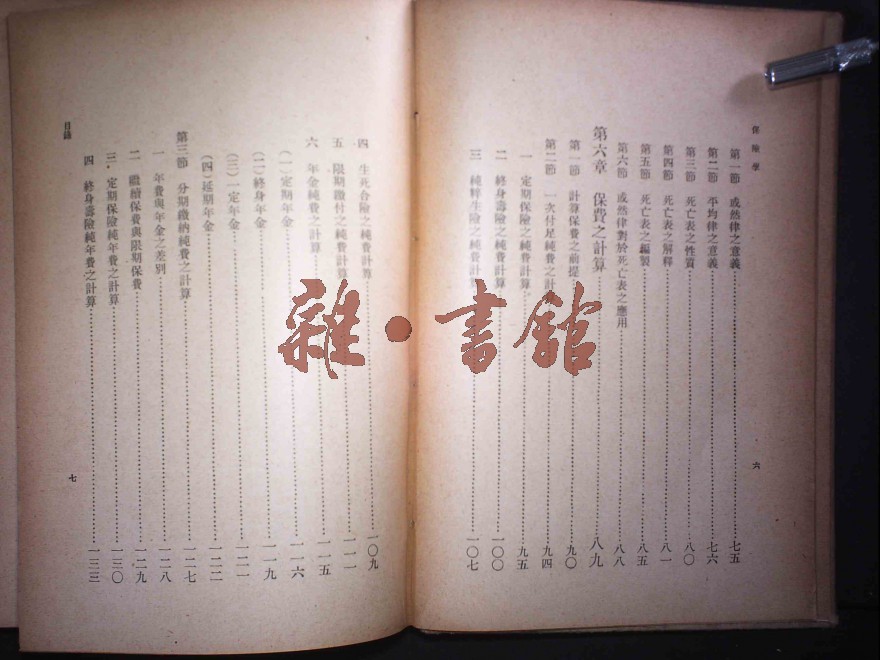 保險學
第一節 或然律之意義 七五
第二節 平均律之意義 七六
第三節 死亡表之性質 八〇
第四節 死亡表之解釋 八一
第五節 死亡表之編製 八五
第六節 或然律對於死亡表之應用 八八
第六章 保費之計算 八九
第一節 計算保費之前提 九〇
第二節 一次付足純費之計 九四
一 定期保險之純費計算 九五
二 終身壽險之純費計算 一〇〇
三 純粹生險之純費計算 一〇七
六
四 生死合險之純費計算 一〇九
五 限期繳付之純費計算 一一一
六 年金純費之計算 一一五
(一)定期年金 一一六
(二)終身年金 一一九
(三)一定年金 一二一
(四)延期年金 一二二
第三節 分期繳納純費之計算 一二七
一 年費與年金之差別 一二八
二 繼續保費與限期保費 一二九
三 定期保險純年費之計算 一三〇
四 終身壽險純年費之計算 一三三
目錄
七
雜·書館